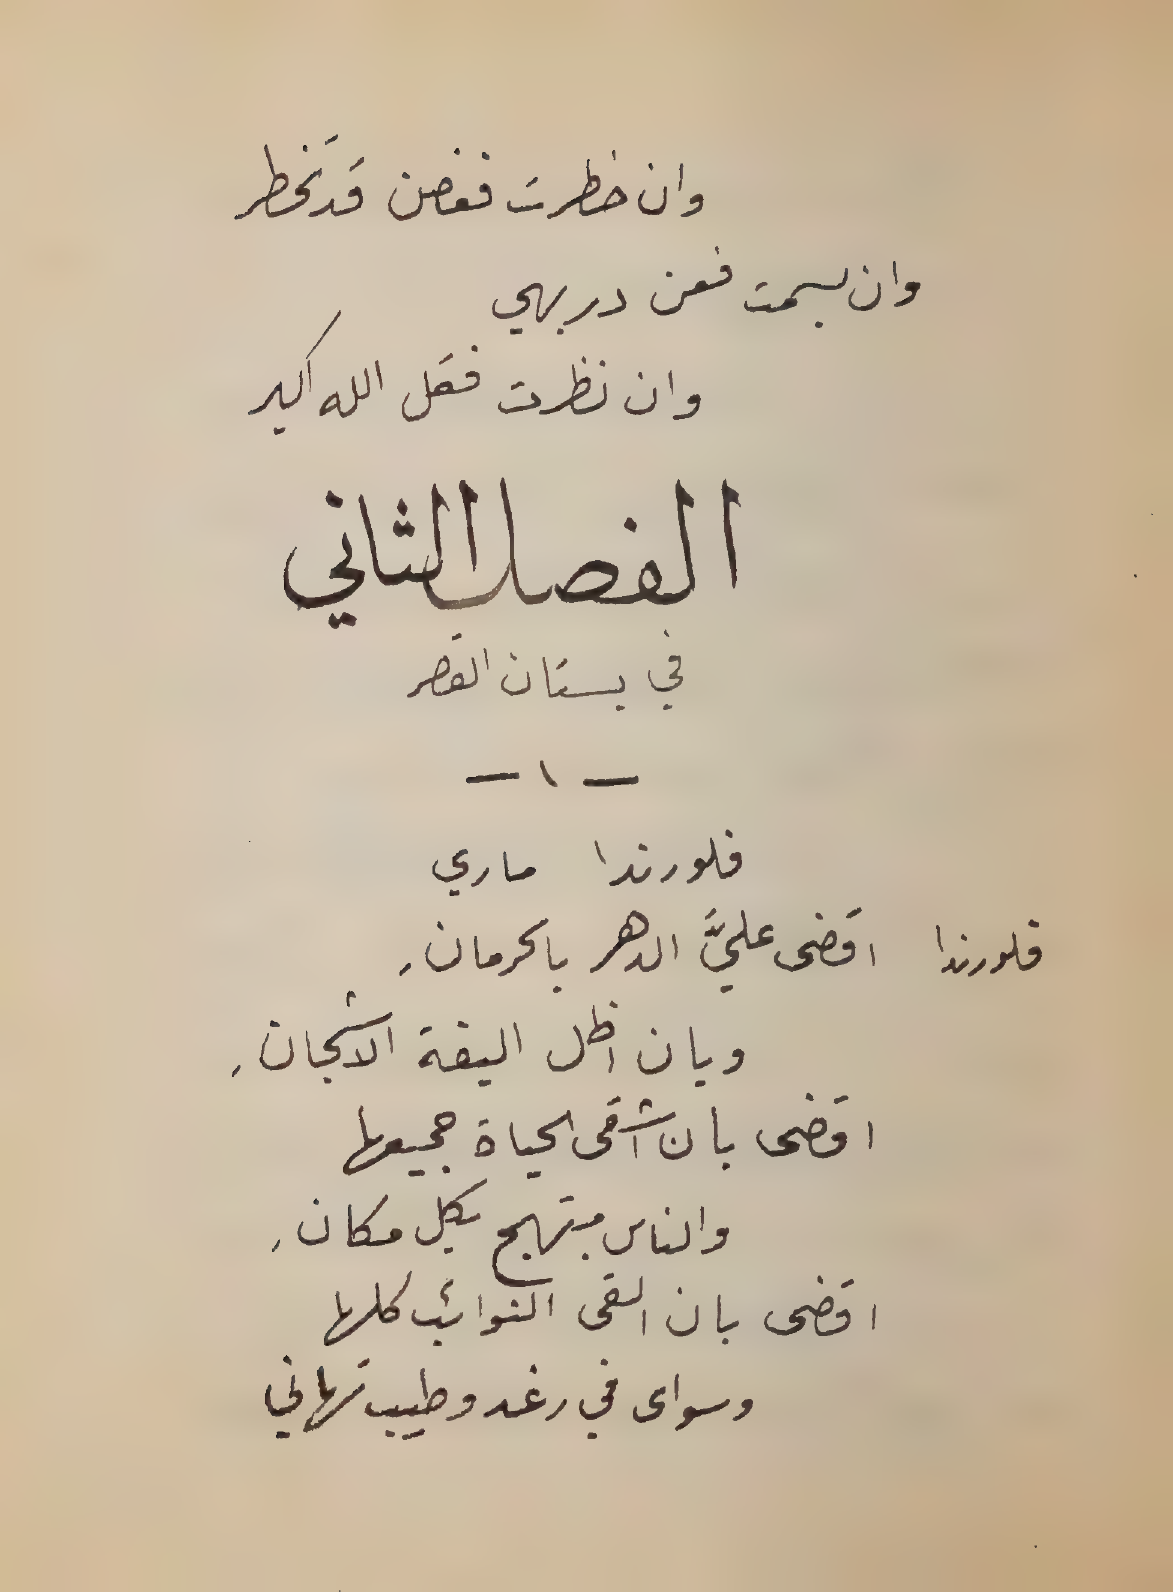 وان خطرت فغصن قد تخطر
وان بسمت فعن در بهي
وان نظرت فقل الله اكبر
الفصل الثاني
في بستان القصر
— ١ —
فلورندا ماري
فلورندا اقضى عليَّ الدهر بالحرمان,
وبان اظل اليفة الاشجان,
اقضى بان اشقى الحياة جميعها
والناس مبتهج بكل مكان,
اقضى بان القى النوائب كلها
وسواى في رغد وطيب تهاني